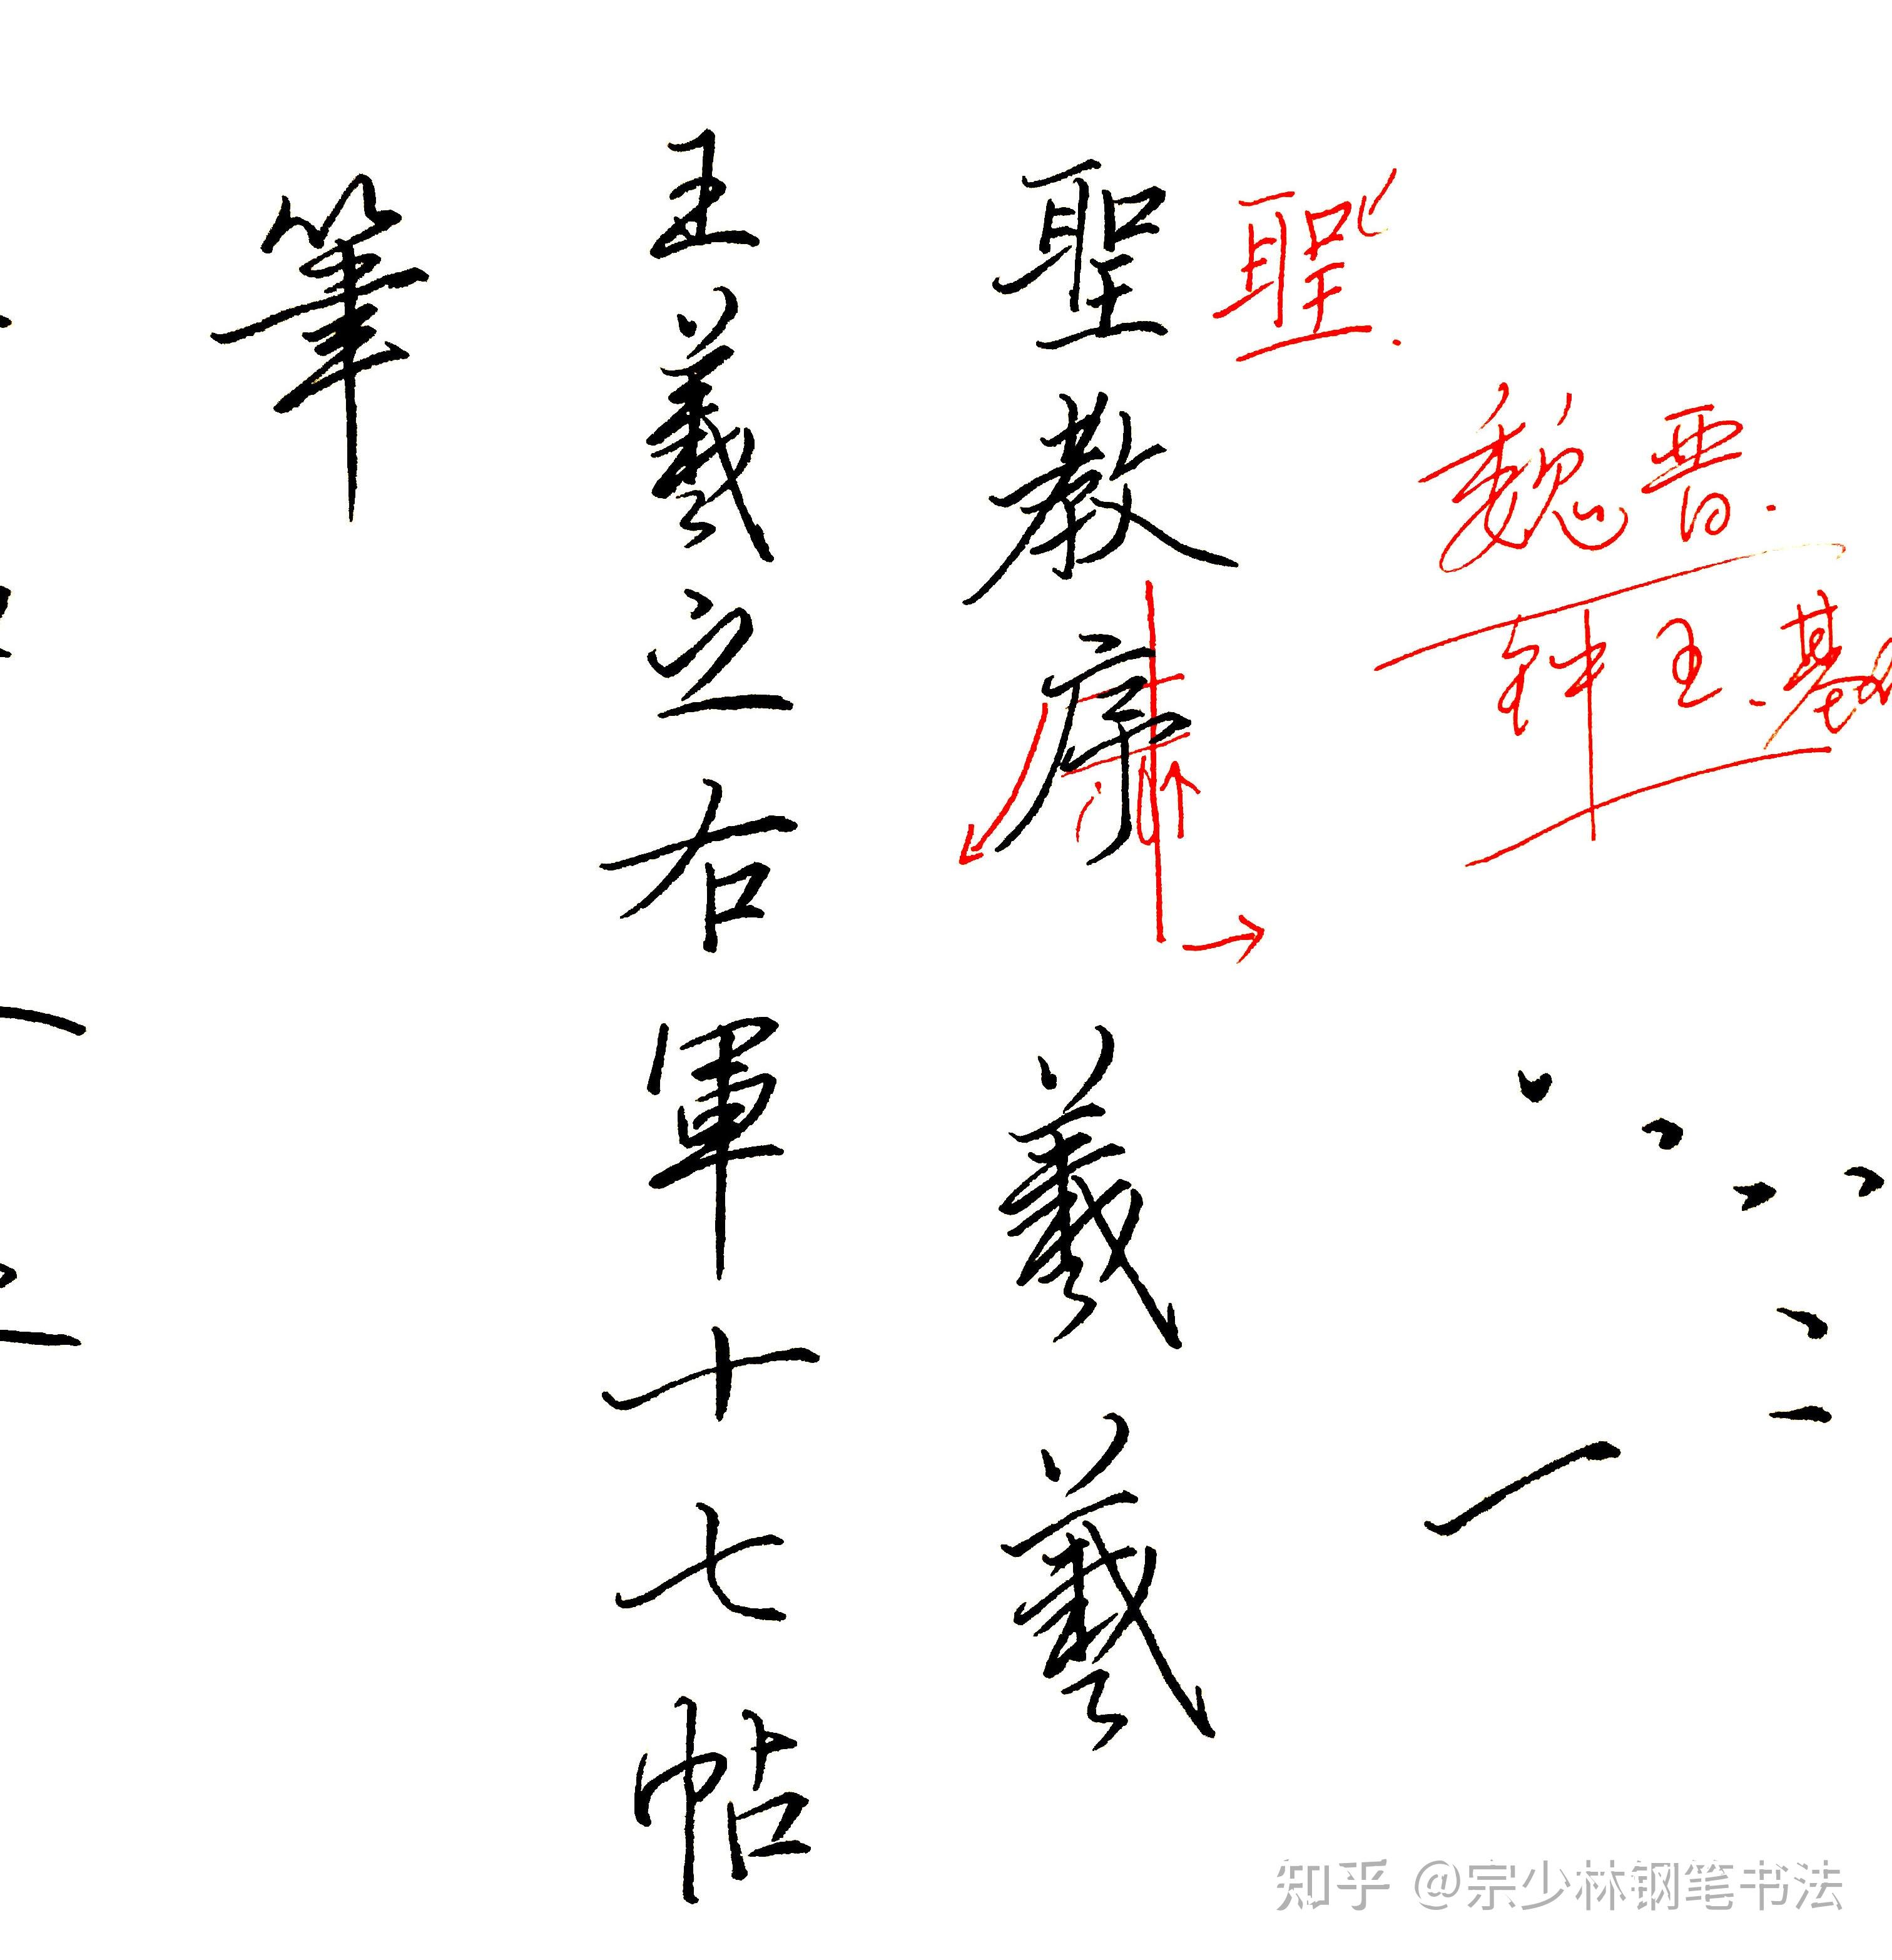 魏晋.
钟王.
聖.
聖教序羲羲
王羲之右軍十七帖
筆
知乎 @宗少林钢笔书法